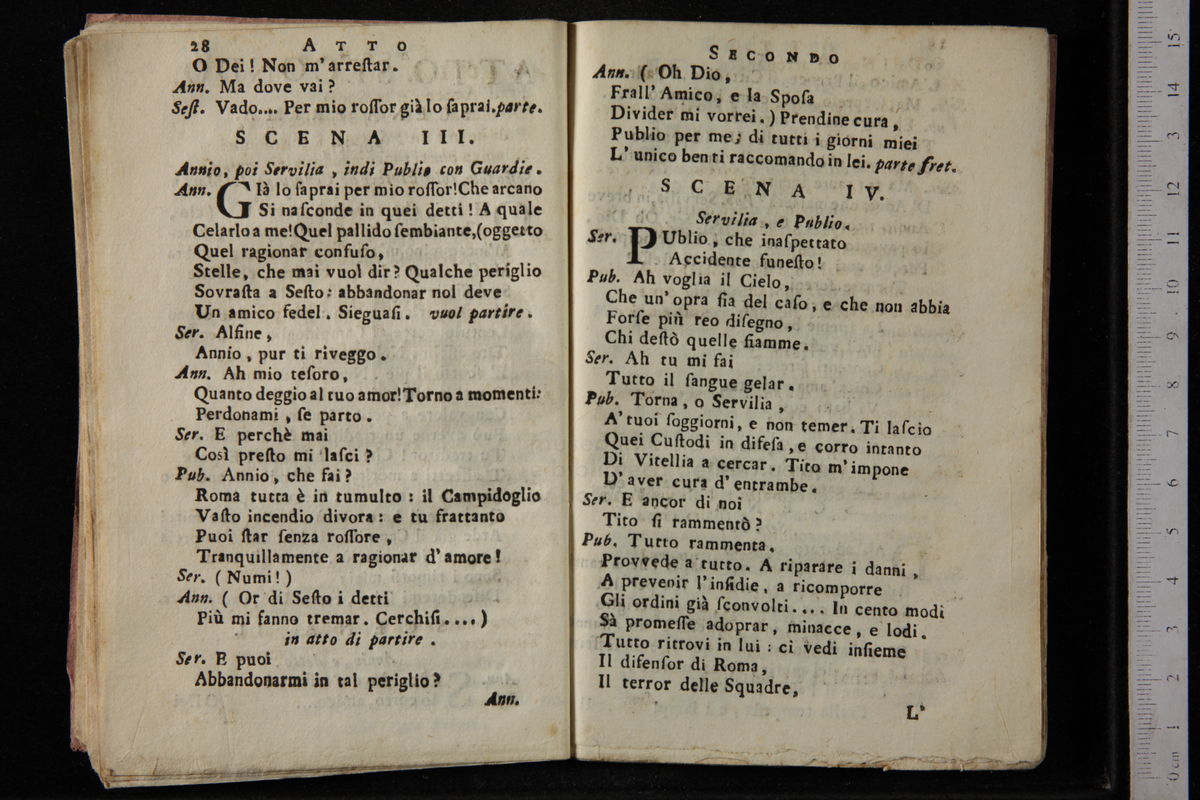 28 ATTO
O Dei! Non m'arreſtar.
Ann. Ma dove vai?
Seſt. Vado.... Per mio roſſor già lo ſaprai. parte.
SCENA III.
Annio, poi Servilia, indi Publio con Guardie.
Ann. GIà lo ſaprai per mio roſſor! Che arcano
Si naſconde in quei detti! A quale
Celarlo a me! Quel pallido ſembiante, (oggetto
Quel ragionar confuſo,
Stelle, che mai vuol dir? Qualche periglio
Sovraſta a Seſto: abbandonar nol deve
Un amico fedel. Sieguaſi. vuol partire.
Ser. Alfine,
Annio, pur ti riveggo.
Ann. Ah mio teſoro,
Quanto deggio al tuo amor! Torno a momenti:
Perdonami, ſe parto.
Ser. E perchè mai
Così preſto mi laſci?
Pub. Annio, che fai?
Roma tutta è in tumulto: il Campidoglio
Vaſto incendio divora: e tu frattanto
Puoi ſtar ſenza roſſore,
Tranquillamente a ragionar d'amore!
Ser. (Numi!)
Ann. (Or di Seſto i detti
Più mi fanno tremar. Cerchiſi....)
in atto di partire.
Ser. E puoi
Abbandonarmi in tal periglio?
Ann.
SECONDO
Ann. (Oh Dio,
Frall' Amico, e la Spoſa
Divider mi vorrei.) Prendine cura,
Publio per me; di tutti i giorni miei
L' unico ben ti raccomando in lei. parte fret.
SCENA IV.
Servilia, e Publio.
Ser. PUblio, che inaſpettato
Accidente funeſto!
Pub. Ah voglia il Cielo,
Che un' opra ſia del caſo, e che non abbia
Forſe più reo diſegno,
Chi deſtò quelle fiamme.
Ser. Ah tu mi fai
Tutto il ſangue gelar.
Pub. Torna, o Servilia,
A' tuoi ſoggiorni, e non temer. Ti laſcio
Quei Cuſtodi in difeſa, e corro intanto
Di Vitellia a cercar. Tito m' impone
D' aver cura d' entrambe.
Ser. E ancor di noi
Tito ſi rammentò?
Pub. Tutto rammenta.
Provvede a tutto. A riparare i danni,
A prevenir l'inſidie, a ricomporre
Gli ordini già ſconvolti.... In cento modi
Sà promeſſe adoprar, minacce, e lodi.
Tutto ritrovi in lui: ci vedi inſieme
Il difenſor di Roma,
Il terror delle Squadre,
L'